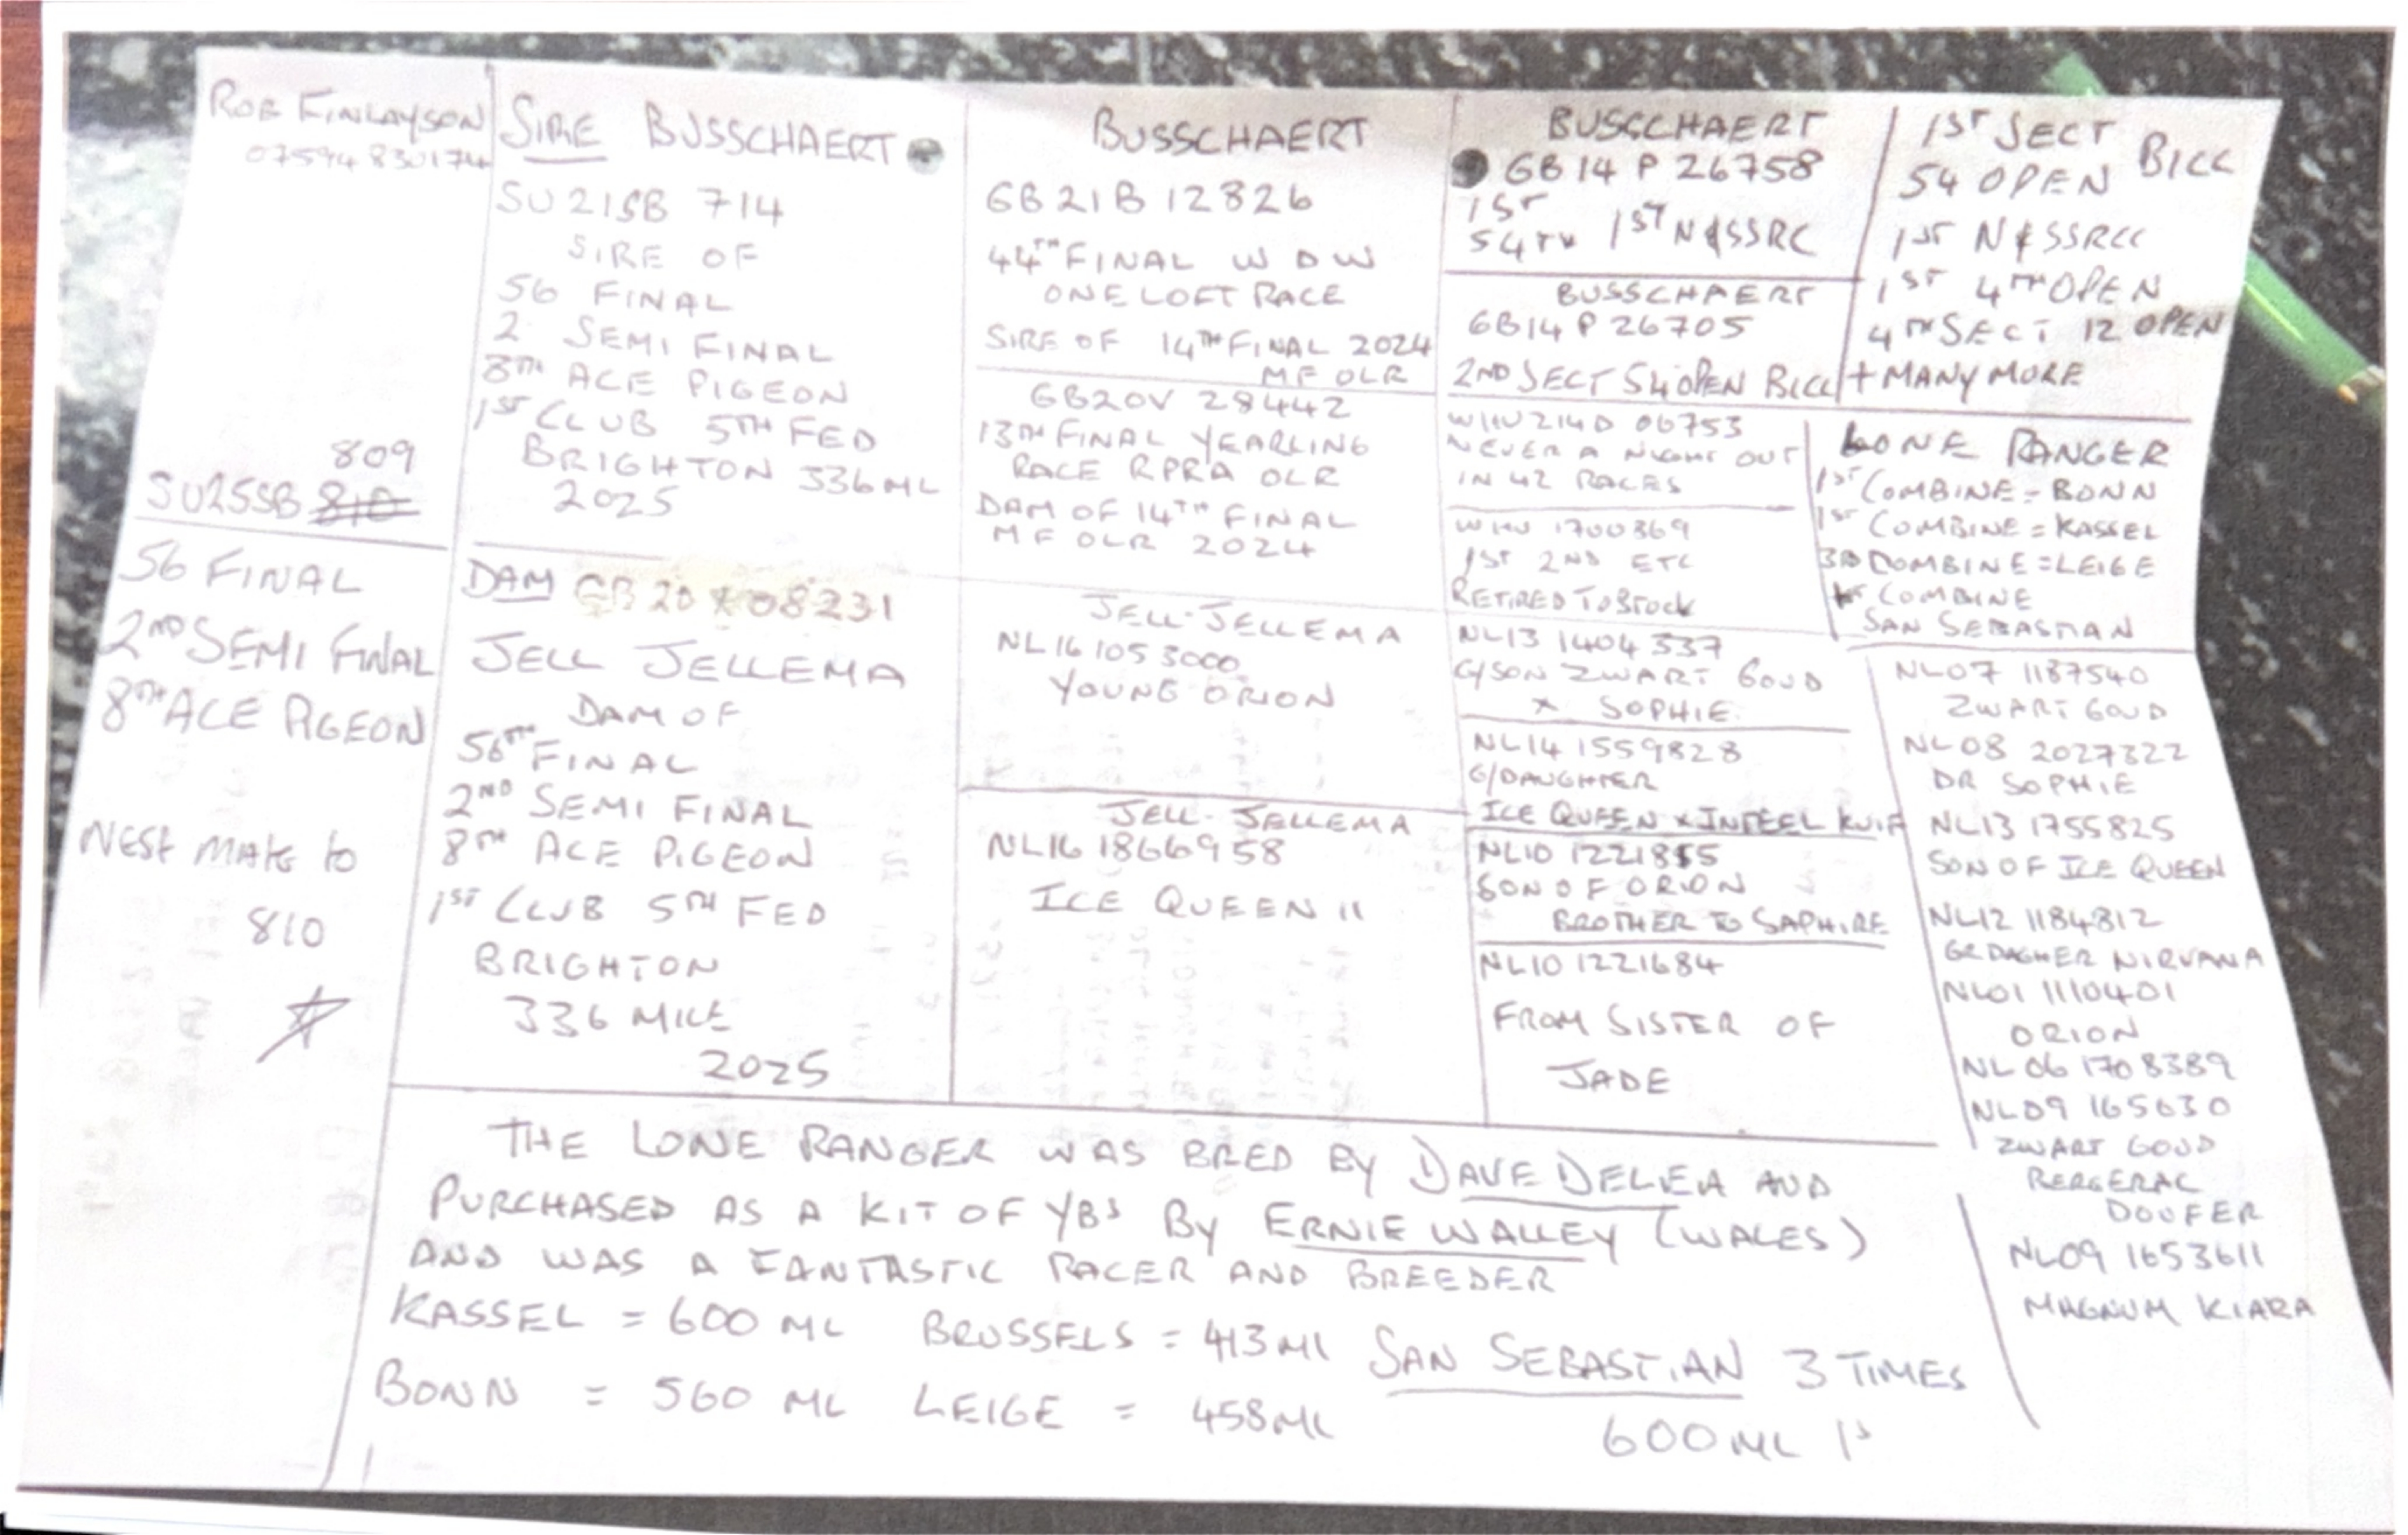 ROB FINLAYSON
07594 830174
809
SU25SB 810
56 FINAL
2ND SEMI FINAL
8TH ACE PIGEON
NEST MATE TO
810
SIRE BUSSCHAERT
SU21SB 714
SIRE OF
56 FINAL
2 SEMI FINAL
8TH ACE PIGEON
1ST CLUB 5TH FED
BRIGHTON 336ML
2025
DAM GB20X08231
JELL JELLEMA
DAM OF
56TH FINAL
2ND SEMI FINAL
8TH ACE PIGEON
1ST CLUB 5TH FED
BRIGHTON
336 MILE
2025
BUSSCHAERT
GB21B12826
44TH FINAL W D W
ONE LOFT RACE
SIRE OF 14TH FINAL 2024
MF OLR
GB20V 28442
13TH FINAL YEARLING
RACE RPRA OLR
DAM OF 14TH FINAL
MF OLR 2024
JELL-JELLEMA
NL16 1053000
YOUNG ORION
JELL-JELLEMA
NL16 1866958
ICE QUEEN 11
BUSSCHAERT
GB14 P 26758
1ST
54TH 1ST N&SSRC
BUSSCHAERT
GB14 P 26705
2ND SECT 54 OPEN BICC
WHU214D 06753
NEVER A NIGHT OUT
IN 42 RACES
WHU 1700369
1ST 2ND ETC
RETIRED TO STOCK
NL13 1404337
G/SON ZWART GOUD
X SOPHIE
NL14 1559828
G/DAUGHTER
ICE QUEEN X INTEEL
NL10 1221855
SON OF ORION
BROTHER TO SAPHIRE
NL10 1221684
FROM SISTER OF
JADE
1ST SECT
54 OPEN BICC
1ST N&SSRCC
1ST 4TH OPEN
4TH SECT 12 OPEN
+ MANY MORE
LONE RANGER
1ST COMBINE = BONN
1ST COMBINE = KASSEL
3RD COMBINE = LEIGE
1ST COMBINE
SAN SEBASTIAN
NL07 1187540
ZWART GOUD
NL08 2027322
DR SOPHIE
NL13 1755825
SON OF ICE QUEEN
NL12 1184812
GRDAGHER NIRVANA
NL01 1110401
ORION
NL06 1708389
NL09 165630
ZWART GOUD
BERGERAC
DOUFER
NL09 1653611
MAGNUM KIARA
THE LONE RANGER WAS BRED BY DAVE DELEA AND
PURCHASED AS A KIT OF YBS BY ERNIE WALLEY (WALES)
AND WAS A FANTASTIC RACER AND BREEDER
KASSEL = 600 ML BRUSSELS = 413ML SAN SEBASTIAN 3 TIMES
BONN = 560 ML LEIGE = 458ML 600ML